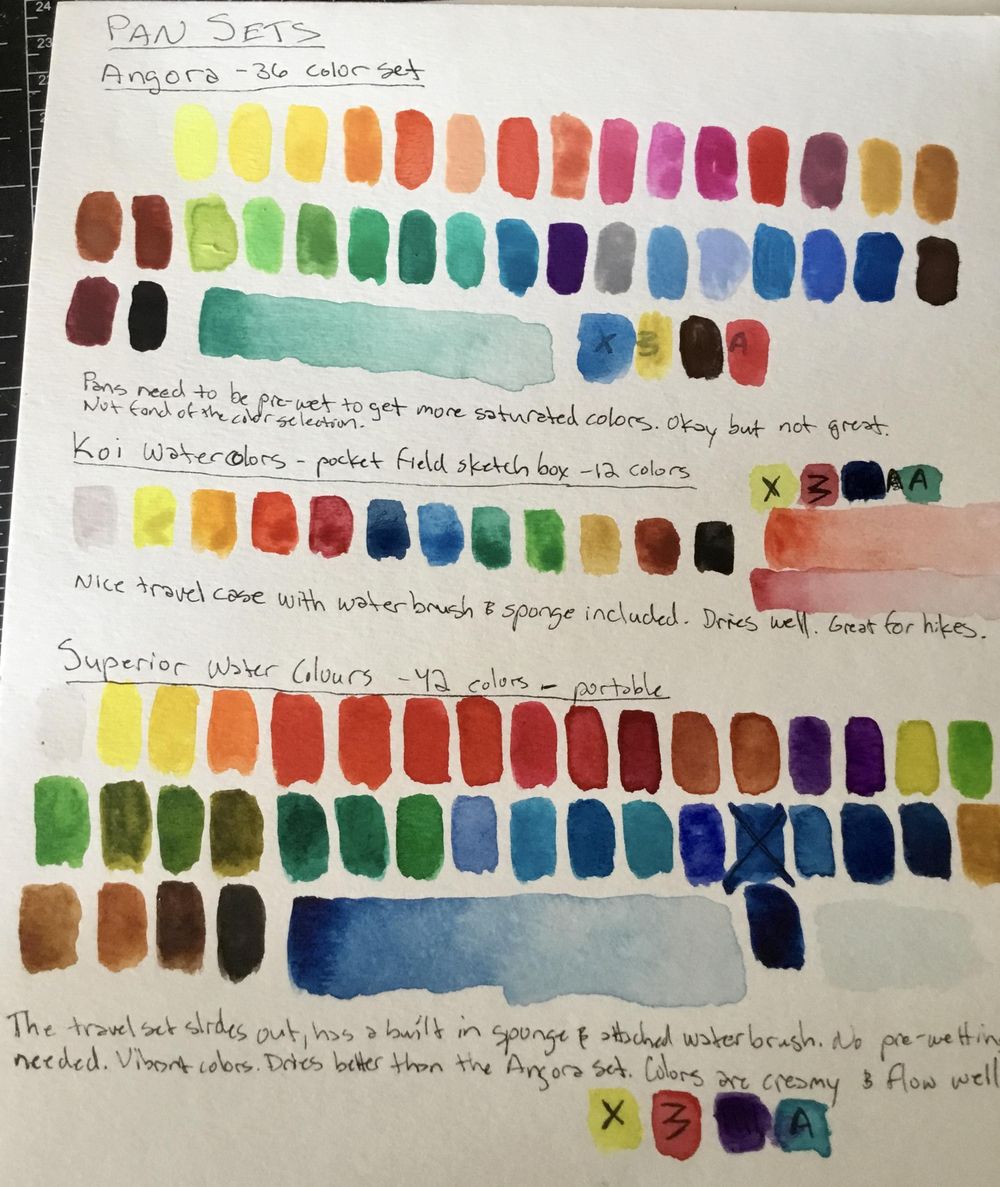 24
23
PAN SETS
Angora - 36 color set
X 3 A
Pans need to be pre-wet to get more saturated colors. Okay but not great.
Not fond of the color selection.
Koi Watercolors - pocket field sketch box - 12 colors
X 3 A
Nice travel case with waterbrush & sponge included. Dries well. Great for hikes.
Superior Water Colours - 42 colors - portable
X
The travel set slides out, has a built in sponge & attached waterbrush. No pre-wettin
needed. Vibrant colors. Dries better than the Angora set. Colors are creamy & flow well
X 3 A